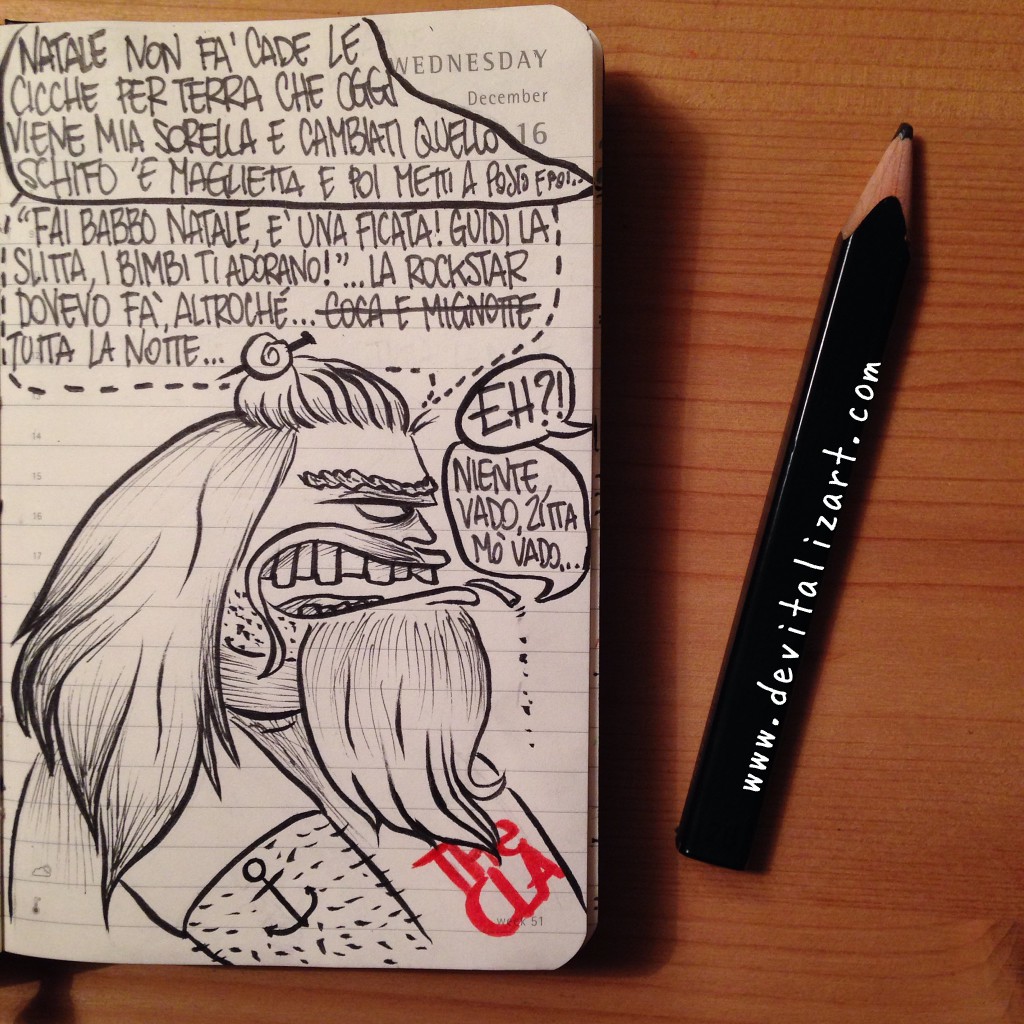 NATALE NON FA' CADE LE
CICCHE PER TERRA CHE OGGI
VIENE MIA SORELLA E CAMBIATI QUELLO
SCHIFO 'E MAGLIETTA E POI METTI A POSTO E POI...
WEDNESDAY
December
16
"FAI BABBO NATALE, E' UNA FICATA! GUIDI LA
SLITTA, I BIMBI TI ADORANO!"... LA ROCKSTAR
DOVEVO FA', ALTROCHÉ... COCA E MIGNOTTE
TUTTA LA NOTTE...
EH?!
NIENTE,
VADO, ZITTA
MÒ VADO...
14
15
16
17
week 51
www.devitalizart.com